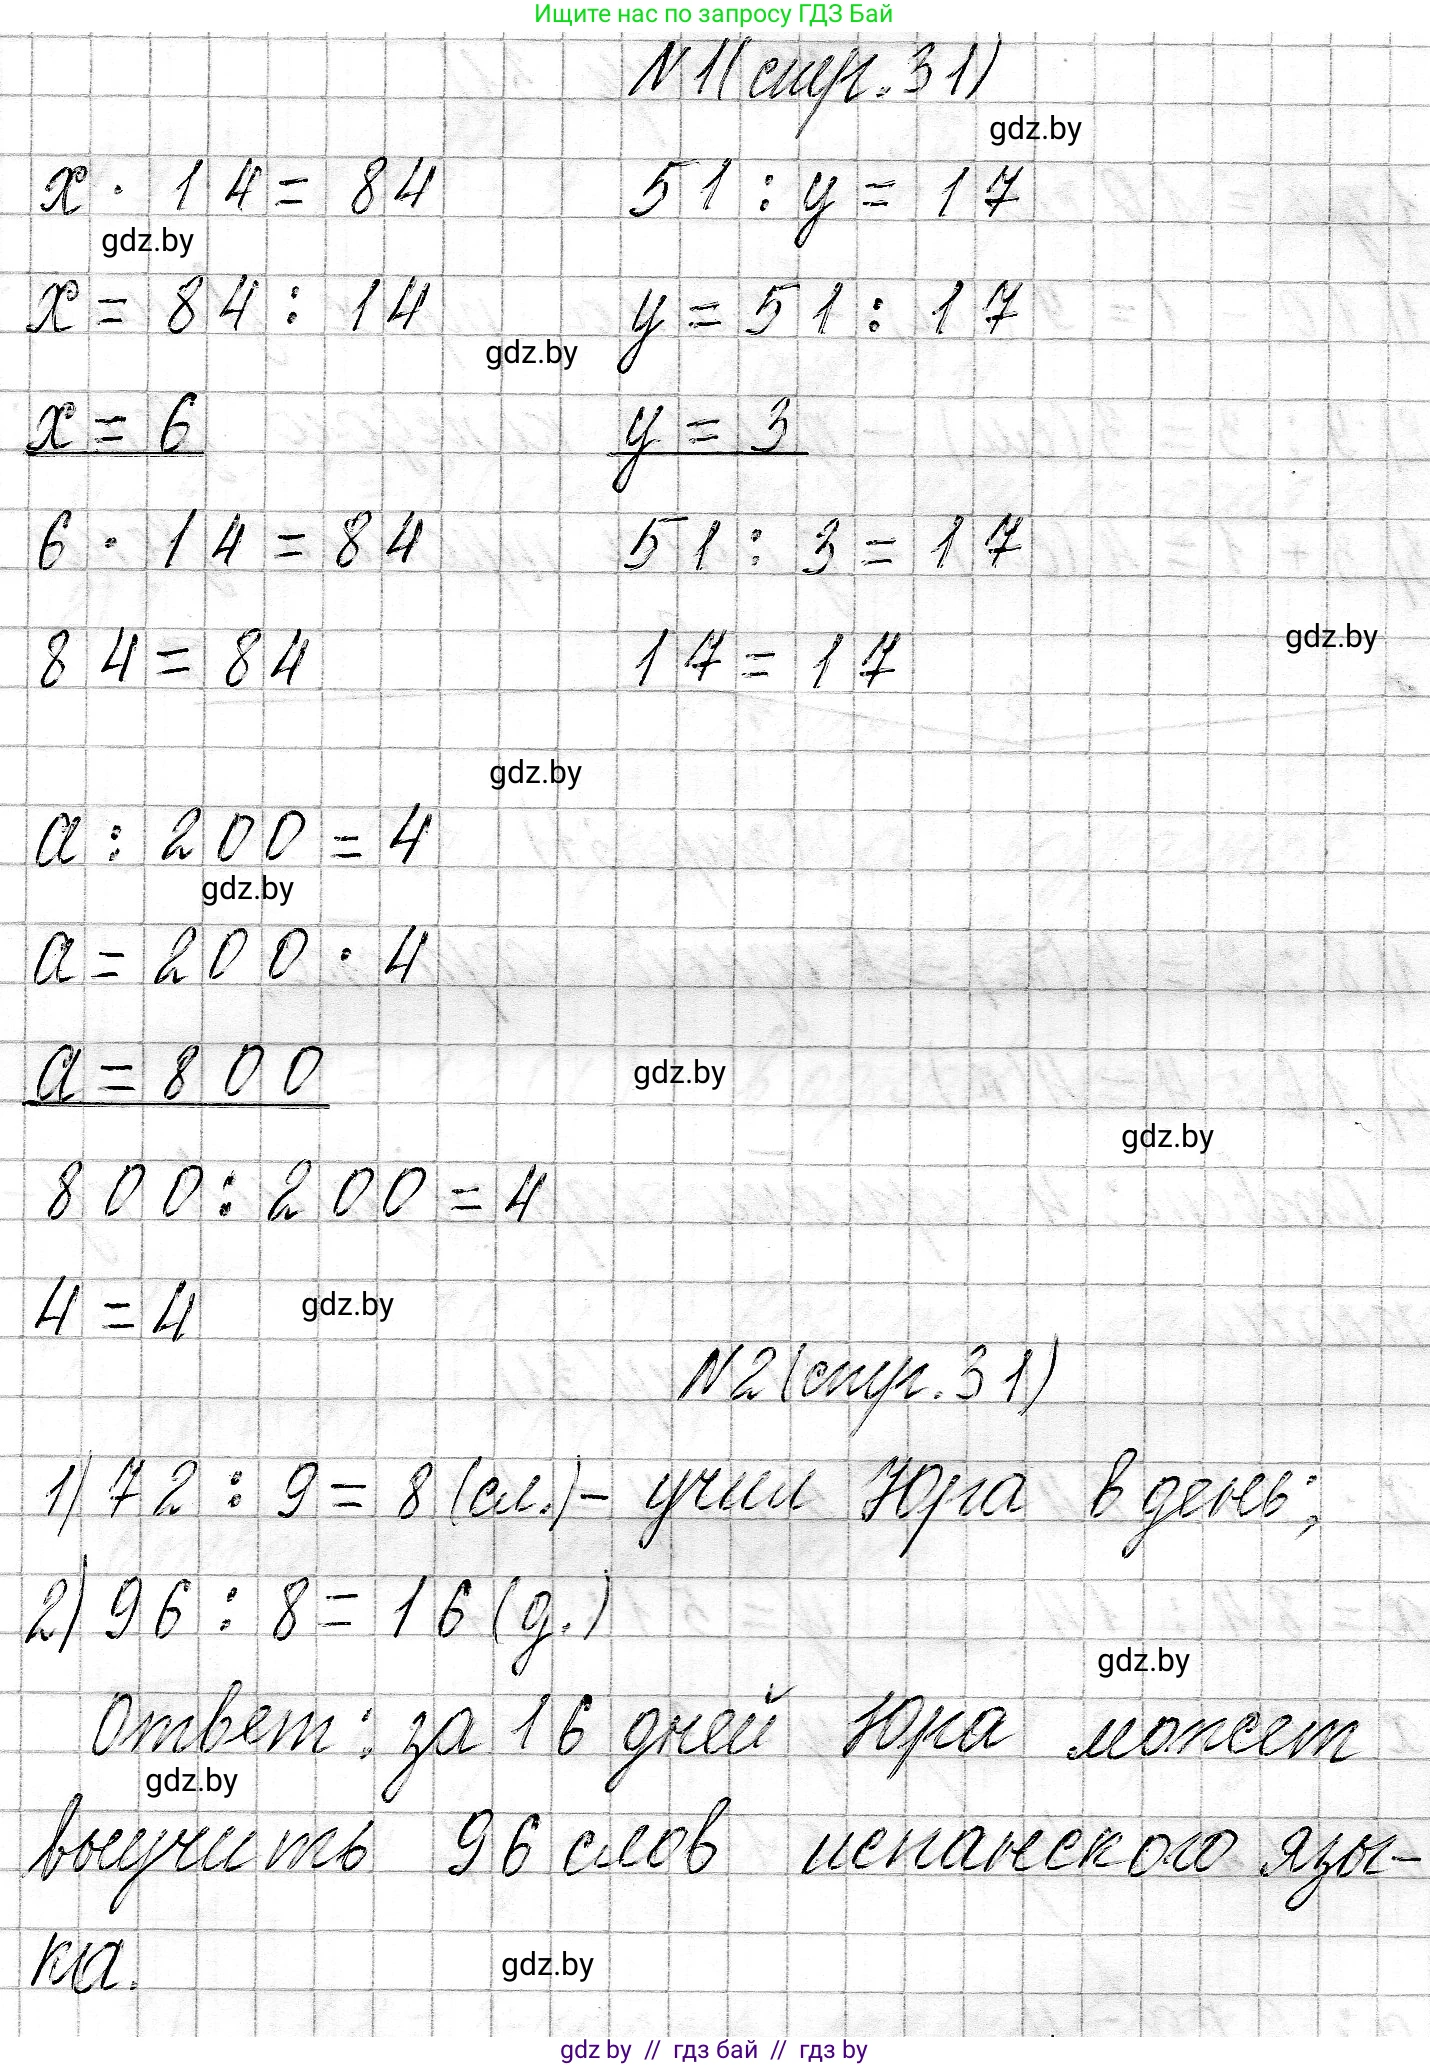 Ищите нас по запросу ГДЗ Бай
N1(стр.31)
gdz.by
x · 14 = 84    51 : y = 17
gdz.by
x = 84 : 14    y = 51 : 17
gdz.by
x = 6    y = 3
6 · 14 = 84    51 : 3 = 17
gdz.by
84 = 84    17 = 17
gdz.by
a : 200 = 4
gdz.by
a = 200 · 4
a = 800
gdz.by
gdz.by
800 : 200 = 4
4 = 4
gdz.by
N2(стр.31)
1) 72 : 9 = 8 (сл.) – учил Юра в день;
2) 96 : 8 = 16 (д.)
gdz.by
Ответ: за 16 дней Юра может
gdz.by
выучить 96 слов испанского язы-
ка.
gdz.by
gdz by // гдз бай // гдз by